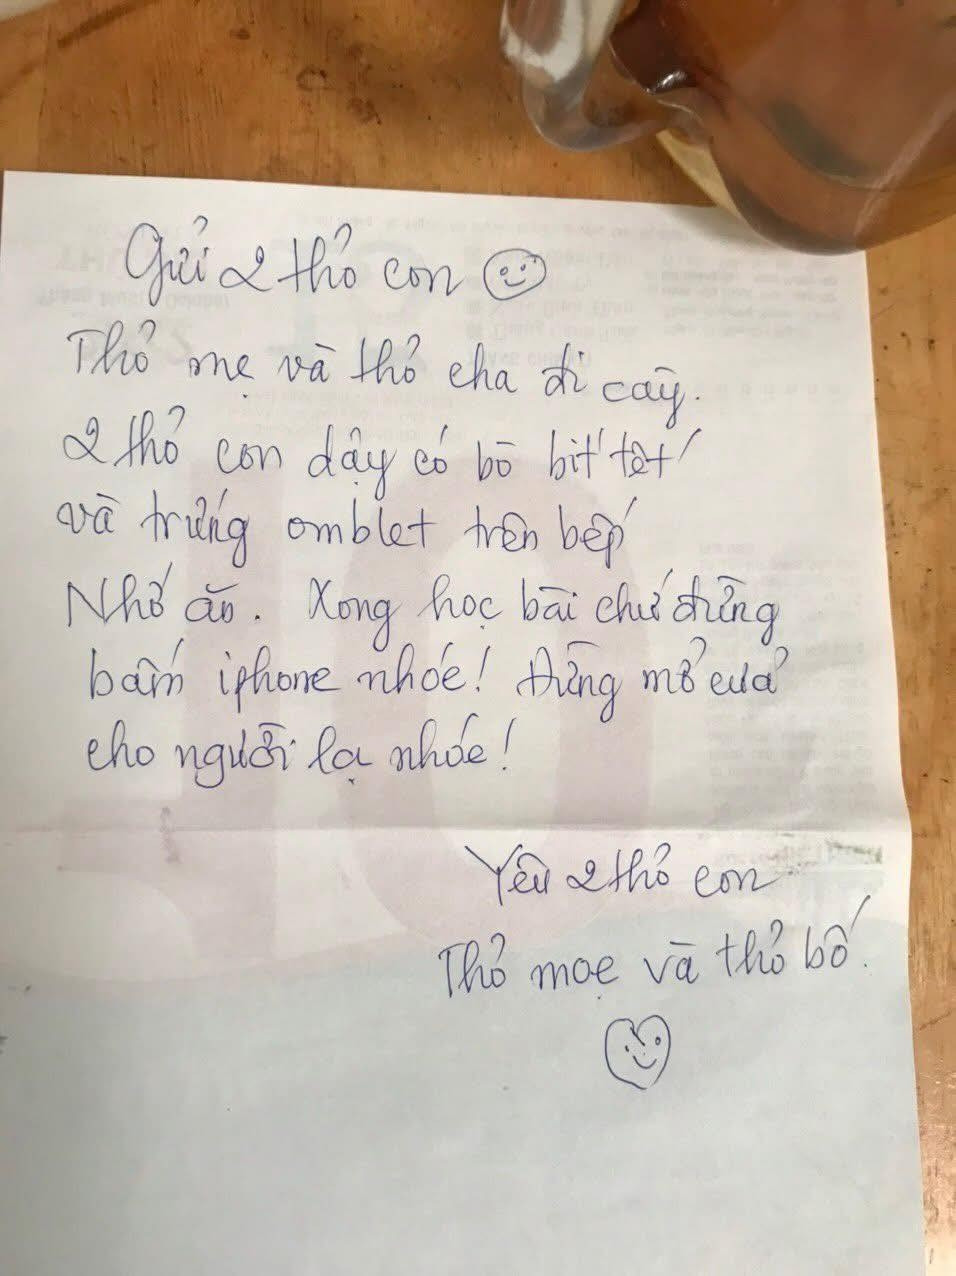 Gửi 2 thỏ con
Thỏ mẹ và thỏ cha đi cày.
2 thỏ con dậy có bò bít tết
và trứng omblet trên bếp
Nhớ ăn. Xong học bài chứ đừng
bấm iphone nhóe! Đừng mở cửa
cho người lạ nhóe!
Yêu 2 thỏ con
Thỏ moẹ và thỏ bố.